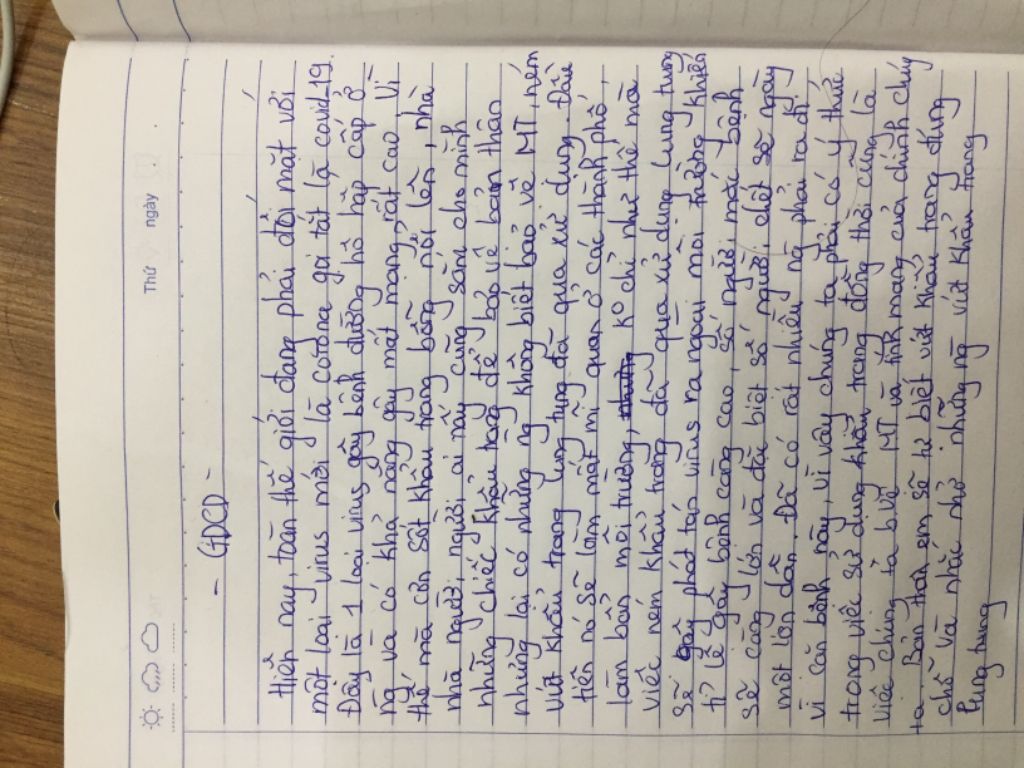 Thứ ngày
- GDCD -
Hiện nay, toàn thế giới đang phải đối mặt với
một loại virus mới là corona gọi tắt là covid-19.
Đây là 1 loại virus gây bệnh đường hô hấp cấp ở
ng và có khả năng gây mất mạng rất cao. Vì
thế mà cơn sốt khẩu trang bỗng nổi lên, nhà
nhà người, người ai nấy cũng sắm cho mình
những chiếc khẩu trang để bảo vệ bản thân
nhưng lại có những ng không biết bảo vệ MT, ném
vứt khẩu trang lung tung đã qua xử dụng. Đầu
tiên nó sẽ làm mất mĩ quan ở các thành phố,
làm bẩn môi trường, ko chỉ như thế mà
việc ném khẩu trang đã qua xử dụng lung tung
sẽ gây phát tán virus ra ngoài môi trường khiến
tỉ lệ gây bệnh càng cao, số người mắc bệnh
sẽ càng lớn và đặc biệt số người chết sẽ ngày
một lớn dần. Đã có rất nhiều ng phải ra đi
vì căn bệnh này, vì vậy chúng ta phải có ý thức
trong việc sử dụng khẩu trang đồng thời cũng là
việc chúng ta bảo vệ MT và tính mạng của chính chúng
ta. Bản thân em sẽ tự biết vứt khẩu trang đúng
chỗ và nhắc nhở những ng vứt khẩu trang
lung tung